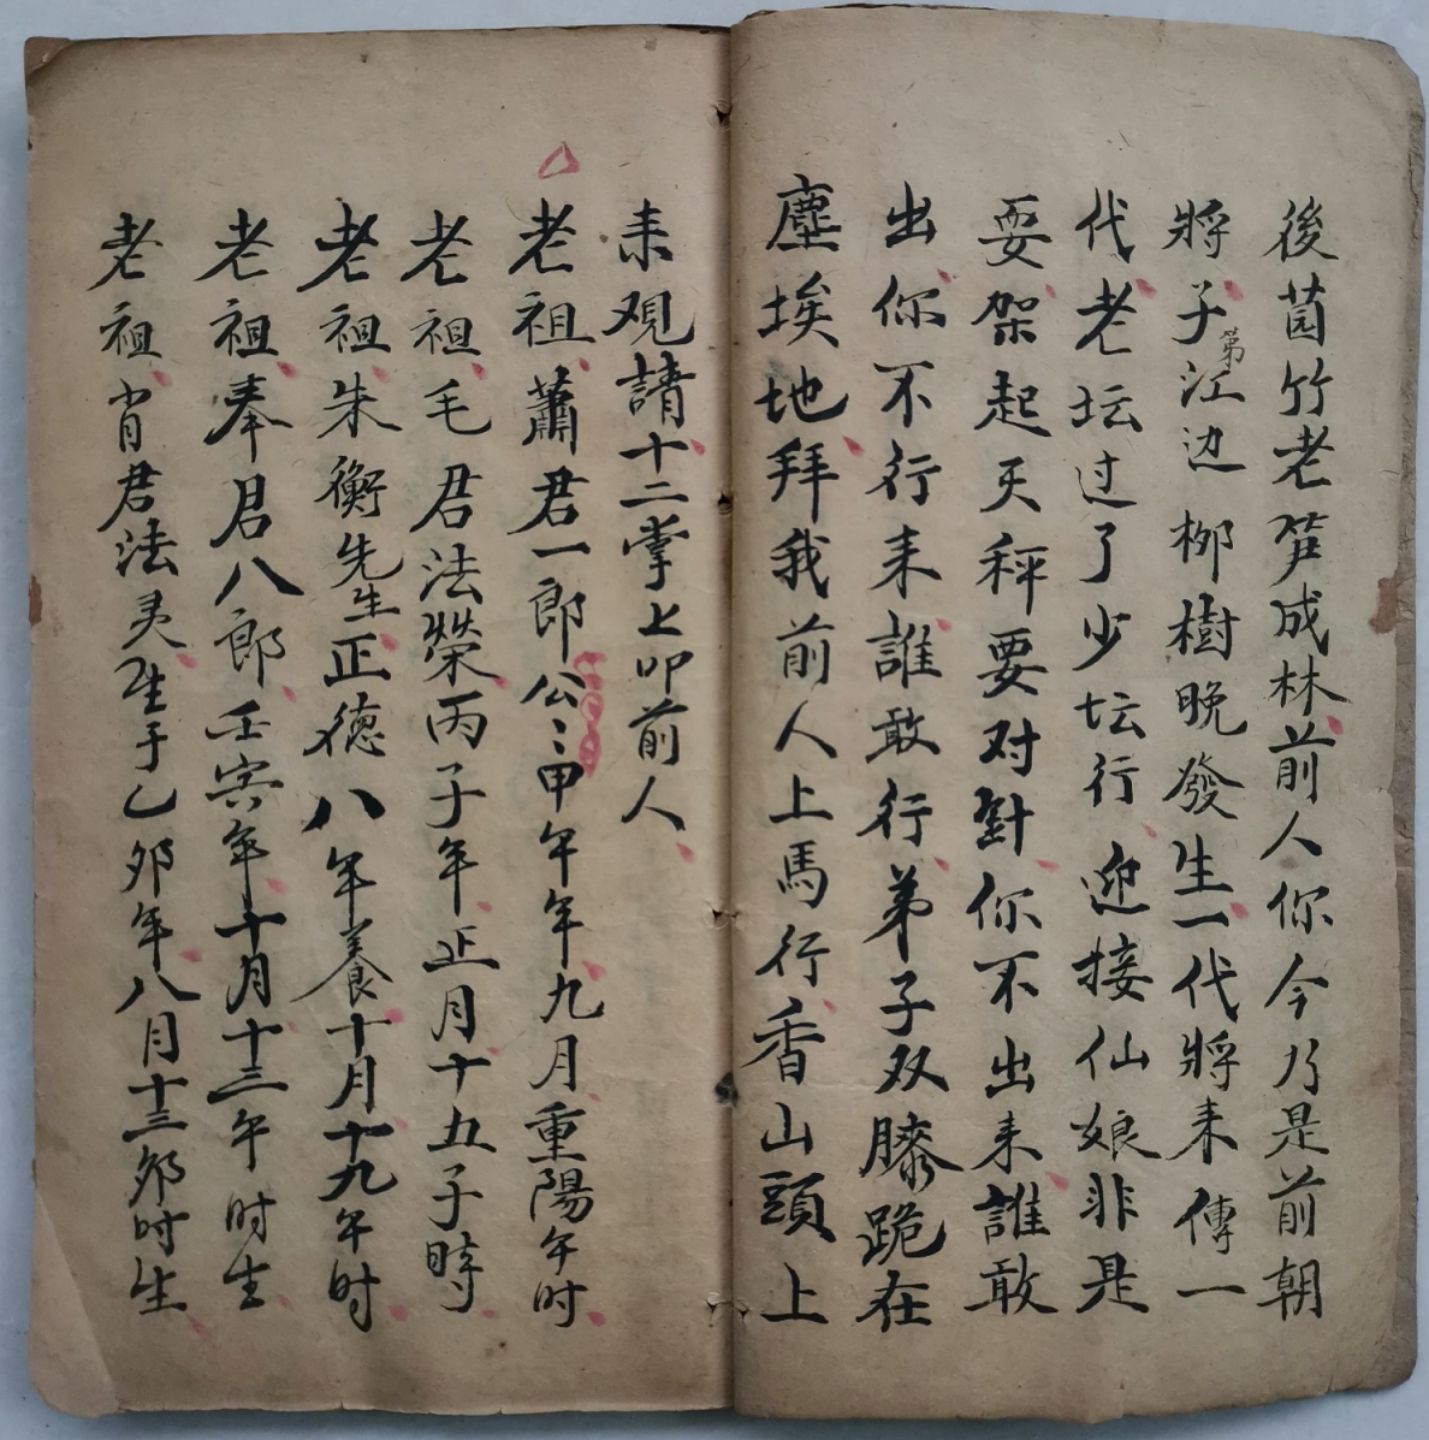 後茵竹老笋成林前人你今乃是前朝
將子第江边柳樹晚發生一代將来傳一
代老坛过了少坛行迎接仙娘非是
要架起天秤要对對你不出来誰敢
出你不行来誰敢行弟子双膝跪在
塵埃地拜我前人上馬行香山頭上
来观請十二掌上叩前人
老祖蕭君一郎公〻甲午年九月重陽午时
老祖毛君法榮丙子年正月十五子時
老祖朱衡先生正德八年養十月十九午时
老祖奉君八郎壬寅年十月十三午时生
老祖肖君法灵生于乙卯年八月十三卯时生